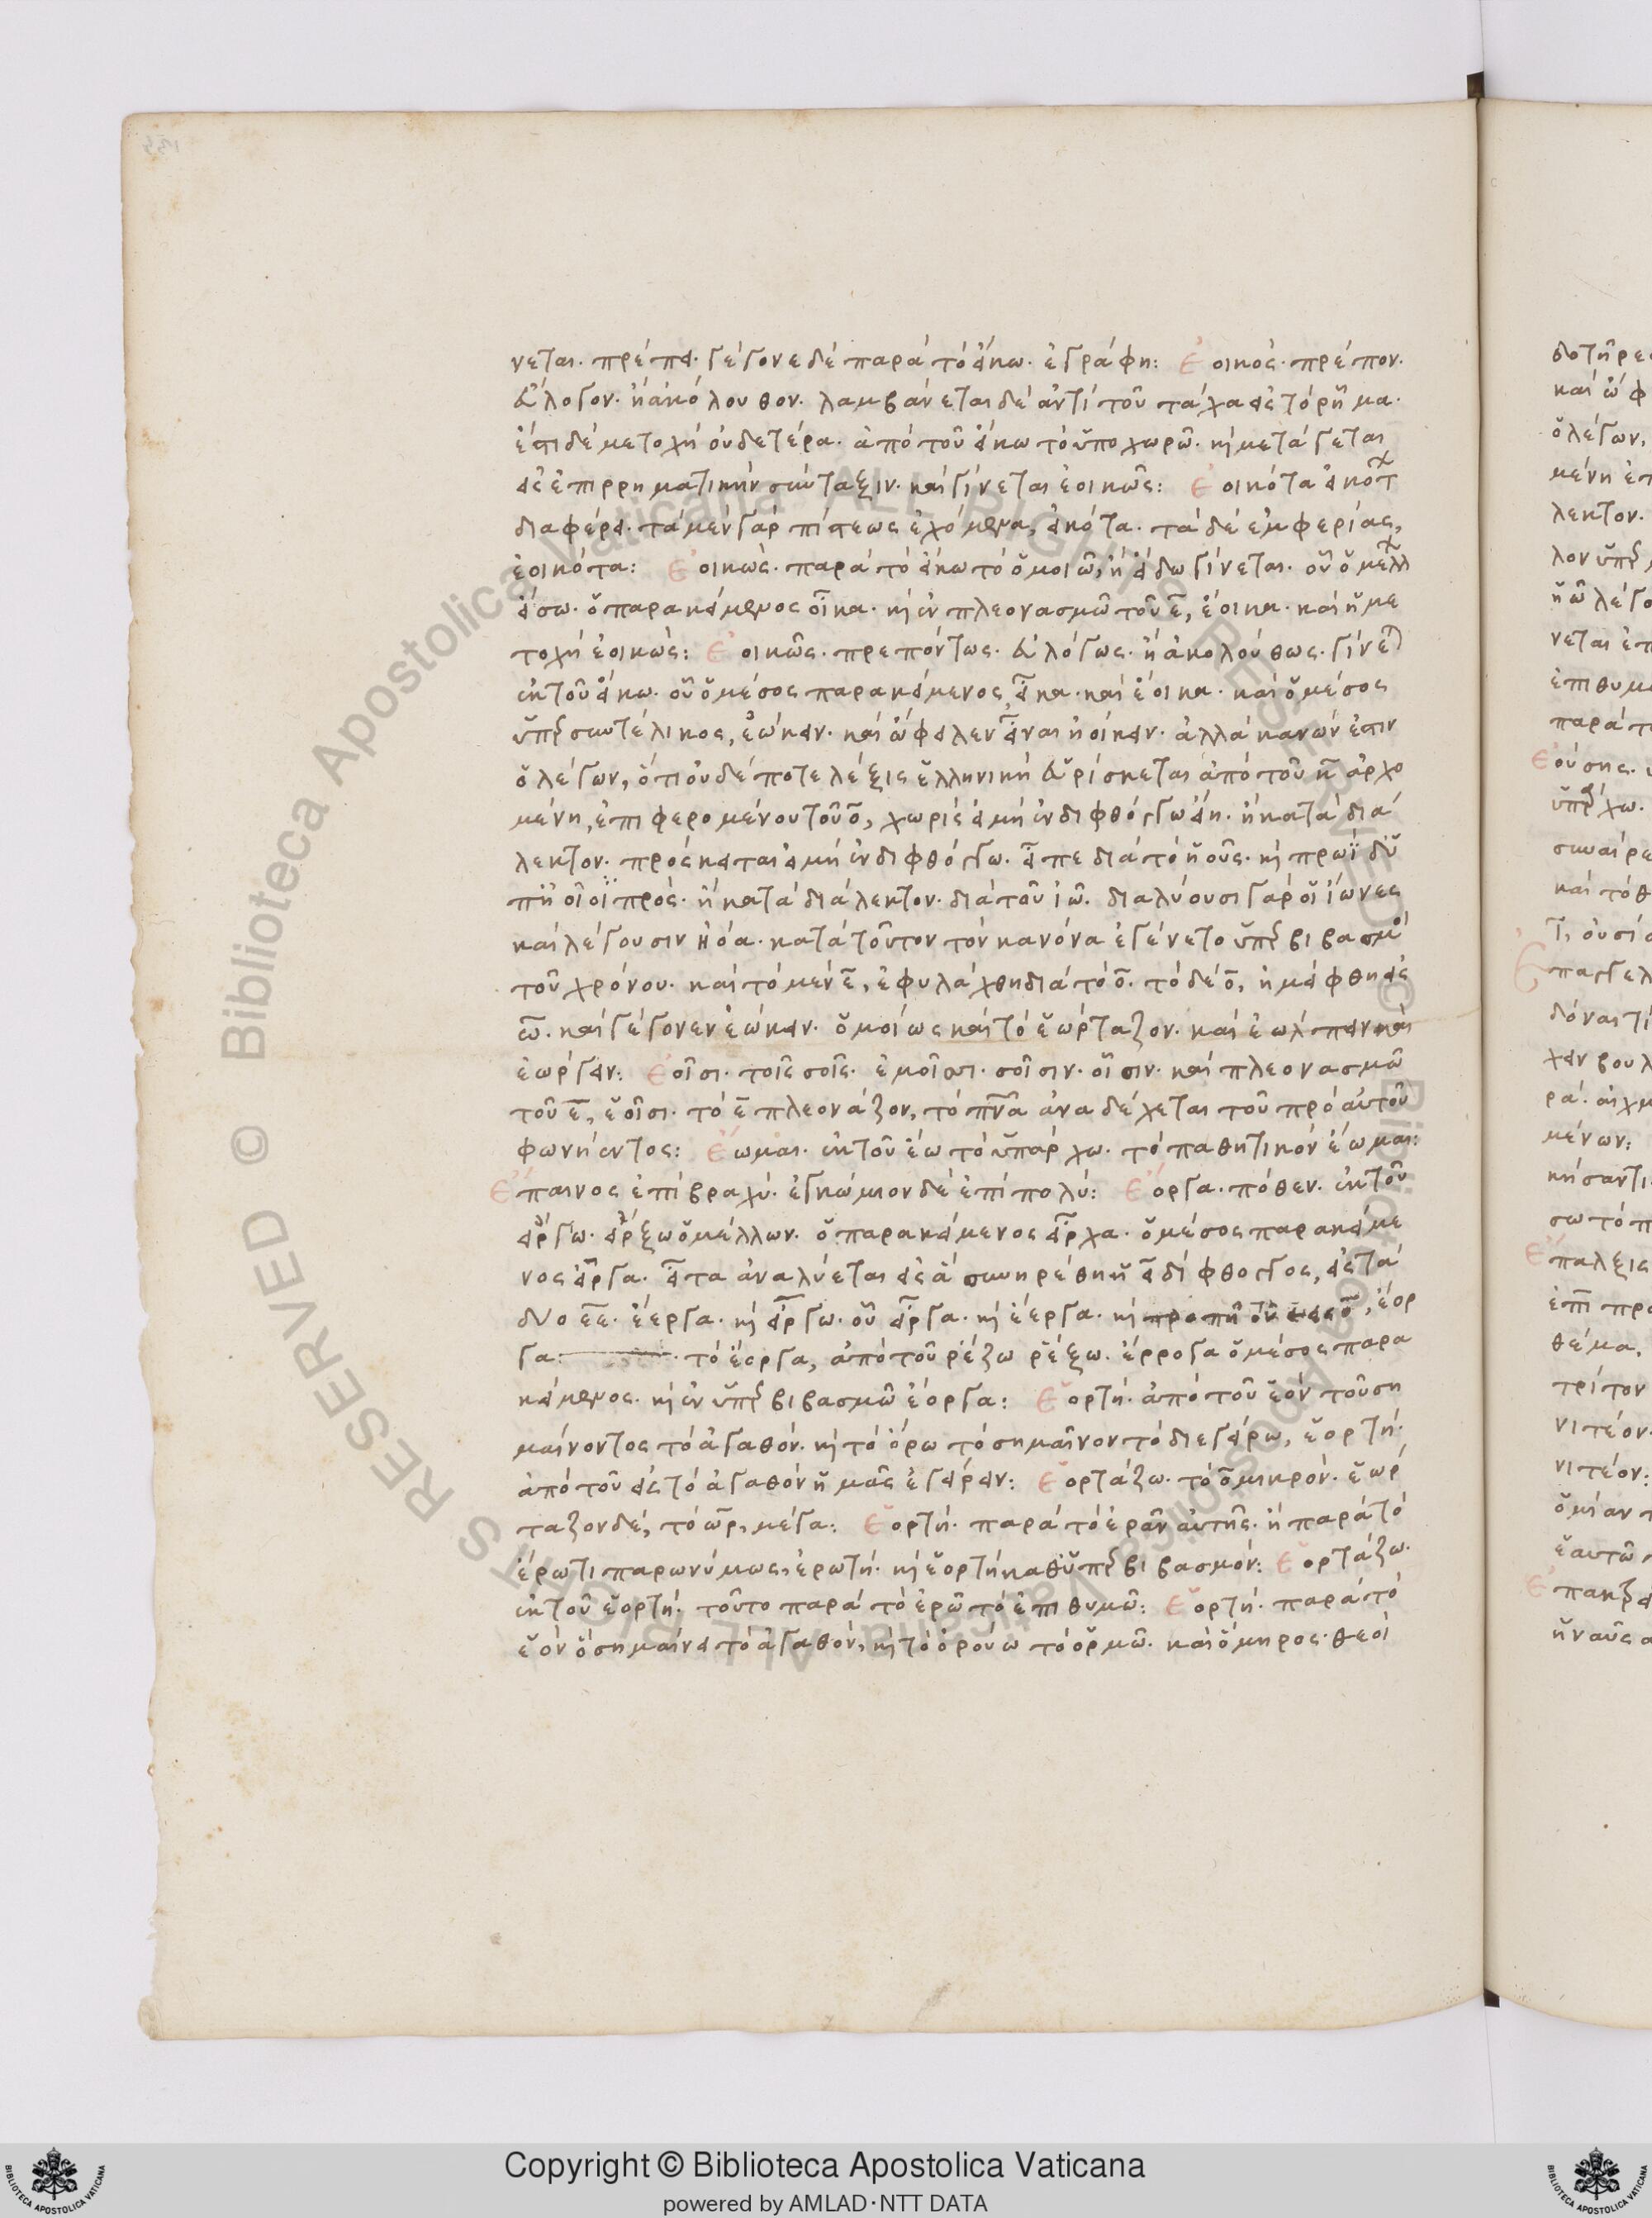 νεται. πρέπει. γέγονε δὲ παρὰ τὸ εἴκω. ἐγράφη: Ἐοικός. πρέπον.
εὔλογον. ἢ ἀκόλουθον. λαμβάνεται δὲ ἀντὶ τοῦ τάχα εἰς τὸ ῥῆμα.
ἔστι δὲ μετοχὴ οὐδετέρα. ἀπὸ τοῦ εἴκω τὸ ὑποχωρῶ. κ̀ μετάγεται
εἰς ἐπιρρηματικὴν σύνταξιν. καὶ γίνεται ἐοικῶς: Ἐοικότα εἰκότ
διαφέρει. τὰ μὲν γὰρ πίστεως ἐχόμενα, εἰκότα. τὰ δὲ ἐμφερίας,
ἐοικότα: Ἐοικὼς. παρὰ τὸ εἴκω τὸ ὁμοιῶ, ἢ εἴδω γίνεται. οὗ ὁ μέλλ
εἴσω. ὁ παρακείμενος οἶκα. κ̀ ἐν πλεονασμῶ τοῦ ε, ἔοικα. καὶ ἡ με
τοχὴ ἐοικὼς: Ἐοικῶς. πρεπόντως. εὐλόγως. ἢ ἀκολούθως. γίνε
ἐκ τοῦ εἴκω. οὗ ὁ μέσος παρακείμενος, εἶκα. καὶ ἔοικα. καὶ ὁ μέσος
ὑπερσυντέλικος, ἐώκειν. καὶ ὤφειλεν εἶναι ἠοίκειν. ἀλλὰ κανών ἐστιν
ὁ λέγων, ὅτι οὐδέποτε λέξις ἑλληνικὴ εὑρίσκεται ἀπὸ τοῦ η ἀρχο
μένη, ἐπιφερομένου τοῦ ο, χωρὶς εἰ μὴ ἐν διφθόγγω εἴη. ἢ κατὰ διά
λεκτον. πρόσκειται εἰ μὴ ἐν διφθόγγω. εἶπε διὰ τὸ ἠοῦς. κ̀ πρωῒ δ' ὑ
πηοῖοϊ πρὸς. ἢ κατὰ διάλεκτον. διὰ τοῦ ἰῶ. διαλύουσι γὰρ οἱ ἴωνες
καὶ λέγουσιν ἠόα. κατὰ τοῦτον τὸν κανόνα ἐγένετο ὑπερβιβασμὸ
τοῦ χρόνου. καὶ τὸ μὲν ε, ἐφυλάχθη διὰ τὸ ο. τὸ δὲ ο, ἠμείφθη εἰς
ω. καὶ γέγονεν ἐώκειν. ὁμοίως καὶ τὸ ἑώρταζον. καὶ ἐώλπειν καὶ
ἐώργειν: Ἑοῖσι. τοῖς σοῖς. ἐμοῖσι. σοῖσιν. οἷσιν. καὶ πλεονασμῶ
τοῦ ε, ἑοῖσι. τὸ ε πλεονάζον, τὸ πνα ἀναδέχεται τοῦ πρὸ αὐτοῦ
φωνήεντος: Ἔωμαι. ἐκ τοῦ ἔω τὸ ὑπάρχω. τὸ παθητικὸν ἔωμαι:
Ἔπαινος ἐπὶ βραχύ. ἐγκώμιον δὲ ἐπὶ πολύ: Ἔοργα. πόθεν. ἐκ τοῦ
εἴργω. εἴρξω ὁ μέλλων. ὁ παρακείμενος εἶρχα. ὁ μέσος παρακείμε
νος εἶργα. εἶτα ἀναλύεται εἰς ἃ συνηρέθη ἡ ει δίφθογγος, εἰς τὰ
δύο εε. ἔεργα. κ̀ εἴργω. οὗ εἶργα. κ̀ ἔεργα. κ̀ τροπῆ τοῦ ε εἰς ο, ἔορ
γα: τὸ ἔοργα, ἀπὸ τοῦ ῥέζω ῥέξω. ἔρρογα ὁ μέσος παρα
κείμενος. κ̀ ἐν ὑπερβιβασμῶ ἔοργα: Ἑορτή. ἀπὸ τοῦ ἑὸν τοῦ ση
μαίνοντος τὸ ἀγαθόν. κ̀ τὸ ὄρω τὸ σημαῖνον τὸ διεγείρω, ἑορτή.
ἀπὸ τοῦ εἰς τὸ ἀγαθὸν ἡμᾶς ἐγείρειν: Ἑορτάζω. τὸ ο μικρόν. ἑώρ
ταζον δὲ, τὸ ωρ, μέγα: Ἑορτή. παρὰ τὸ ἐρᾶν αὐτῆς. ἢ παρὰ τὸ
ἔρωτι παρωνύμως, ἐρωτή. κ̀ ἑορτὴ καθ' ὑπερβιβασμόν: Ἑορτάζω.
ἐκ τοῦ ἑορτή. τοῦτο παρὰ τὸ ἐρῶ τὸ ἐπιθυμῶ: Ἑορτή. παρὰ τὸ
ἑὸν ὃ σημαίνει τὸ ἀγαθόν, κ̀ τὸ ὀρούω τὸ ὁρμῶ. καὶ ὅμηρος. θεοὶ
Copyright © Biblioteca Apostolica Vaticana
powered by AMLAD·NTT DATA